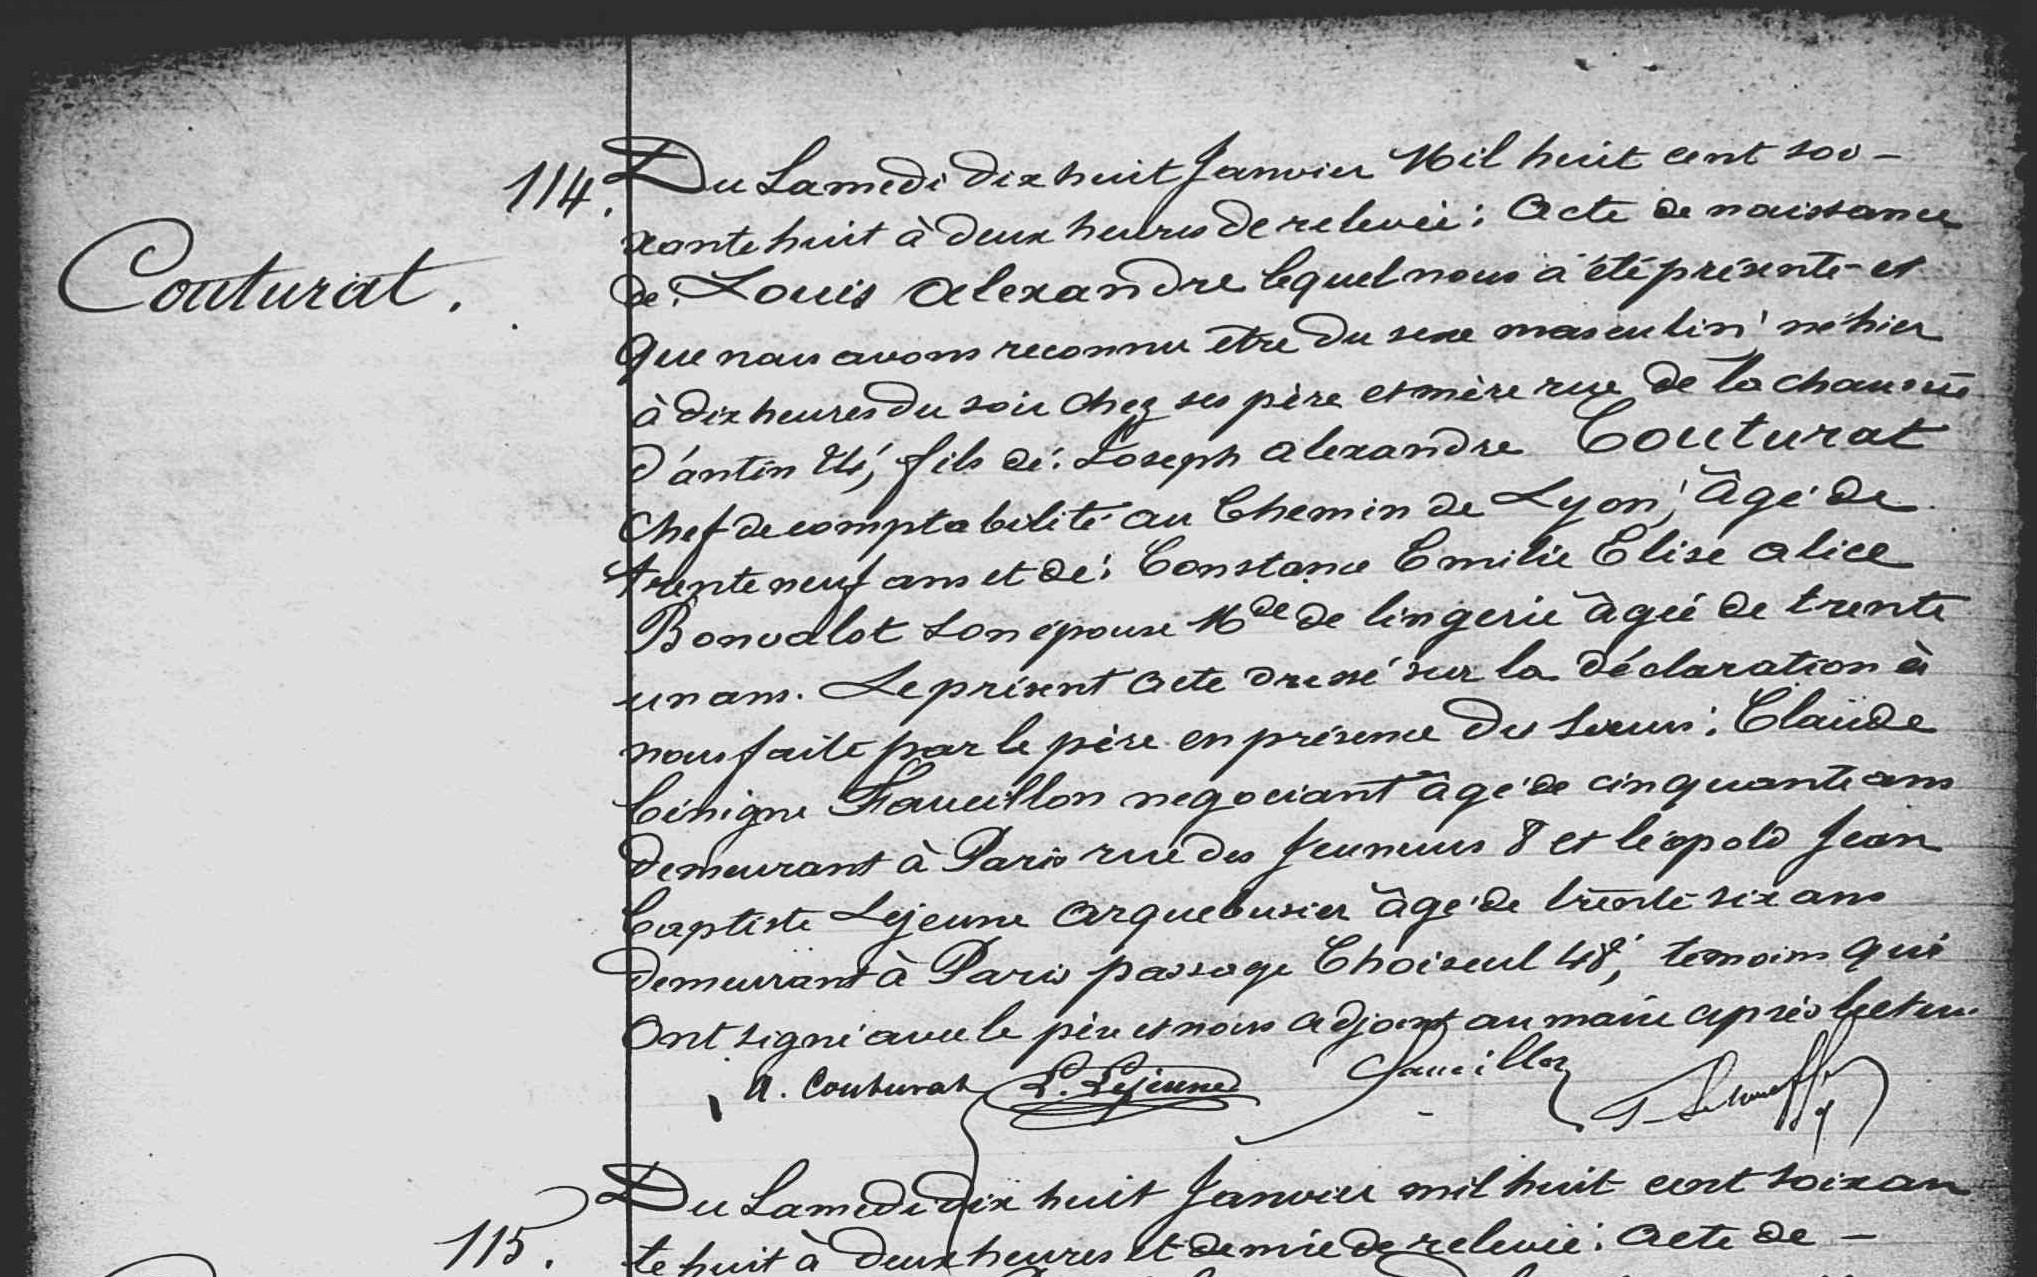 114.
Couturat.
Du Samedi dix huit Janvier Mil huit cent soi-
xante huit à deux heures de relevée: Acte de naissance
de: Louis Alexandre lequel nous a été présenté et
que nous avons reconnu être du sexe masculin né hier
à dix heures du soir chez ses père et mère rue de la chaussée
d'antin 24, fils de: Joseph Alexandre Couturat
Chef de comptabilité au Chemin de Lyon, âgé de
trente neuf ans et de: Constance Emilie Elise Alice
Bonvalot son épouse Mde de lingerie âgée de trente
un ans. Le présent acte dressé sur la déclaration à
nous faite par le père en présence des Sieurs: Claude
bénigne Faucillon negociant âgé de cinquante ans
demeurant à Paris rue des Jeuneurs 8 et léopold Jean
baptiste Lejeune arquebusier âgé de trente six ans
demeurant à Paris passage Choiseul 48, temoins qui
Ont signé avec le père et nous adjoint au maire après lecture
A. Couturat L. Lejeune Faucillon
115.
Du Samedi dix huit Janvier mil huit cent soixan
te huit à deux heures et demie de relevée: Acte de -